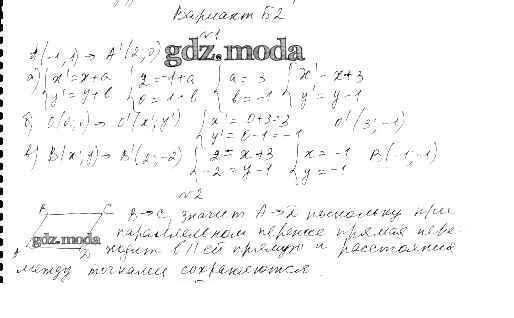 Вариант Б2
№1
A(-1;1) → A'(2;0)
gdz.moda
а) { x' = x + a y' = y + b { 2 = -1 + a 0 = 1 + b { a = 3 b = -1 { x' = x + 3 y' = y - 1
б) O(0;0) → O'(x';y') { x' = 0+3=3 y' = 0-1=-1 O'(3;-1)
в) B(x;y) → B'(2;-2) { 2 = x + 3 -2 = y - 1 { x = -1 y = -1 B(-1;-1)
№2
B C B → C, значит A → D поскольку при
параллельном переносе прямая пере-
gdz.moda
A D ходит в || ей прямую и расстояние
между точками сохраняются.